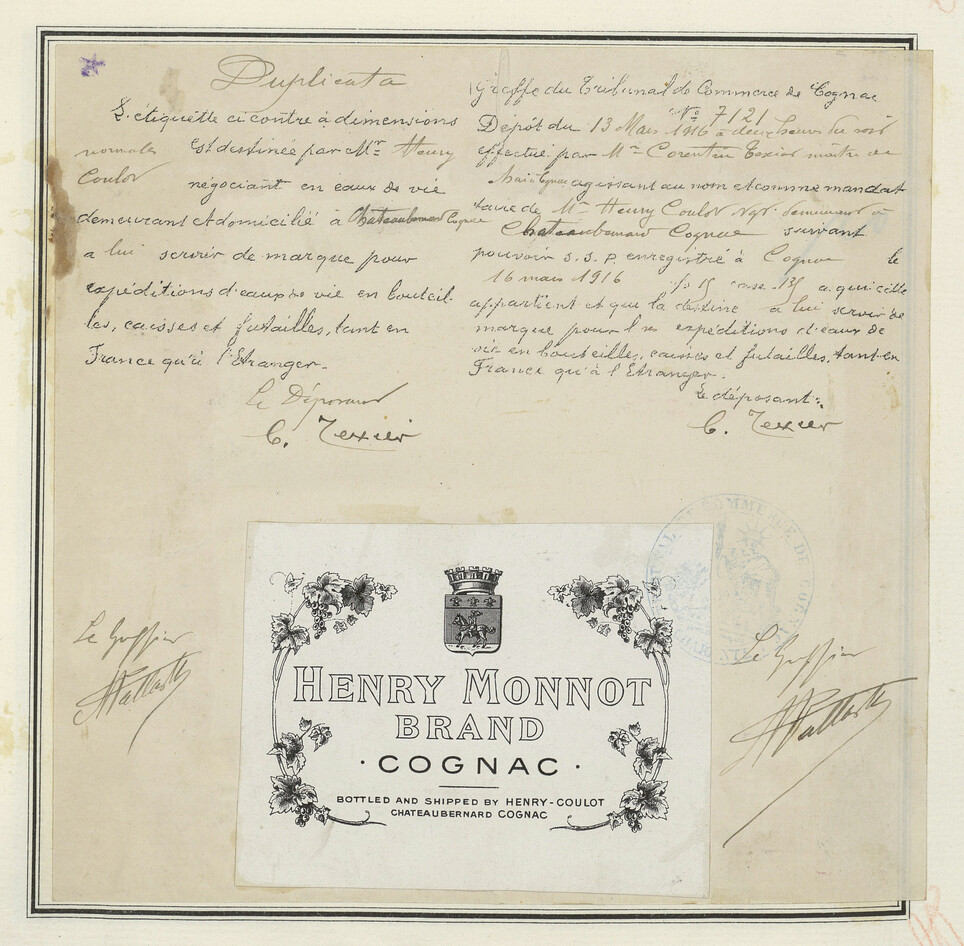 Duplicata
L'étiquette ci contre à dimensions
normales est destinée par Mr Henry
Coulot négociant en eaux de vie
demeurant et domicilié à Chateaubernard Cognac
a lui servir de marque pour
expéditions d'eaux de vie en bouteil-
les, caisses et futailles, tant en
France qu'à l'Etranger.
Le Déposant
C. Texier
Greffe du Tribunal de Commerce de Cognac
No 7121
Dépôt du 13 Mars 1916 à deux heures du soir
effectué par Mr Corentin Texier maître de
chai à Cognac agissant au nom et comme mandat
taire de Mr Henry Coulot Ngt. demeurant à
Chateaubernard Cognac suivant
pouvoir s.s.p enregistré à Cognac le
16 mars 1916 fo 15 case 135 a qui elle
appartient et que la destine à lui servir de
marque pour les expéditions d'eaux de
vie en bouteilles, caisses et futailles, tant en
France qu'à l'Etranger.
Le déposant:
C. Texier
TRIBUNAL DE COMMERCE DE COGNAC
Le Greffier
Le Greffier
HENRY MONNOT
BRAND
· COGNAC ·
BOTTLED AND SHIPPED BY HENRY-COULOT
CHATEAUBERNARD COGNAC